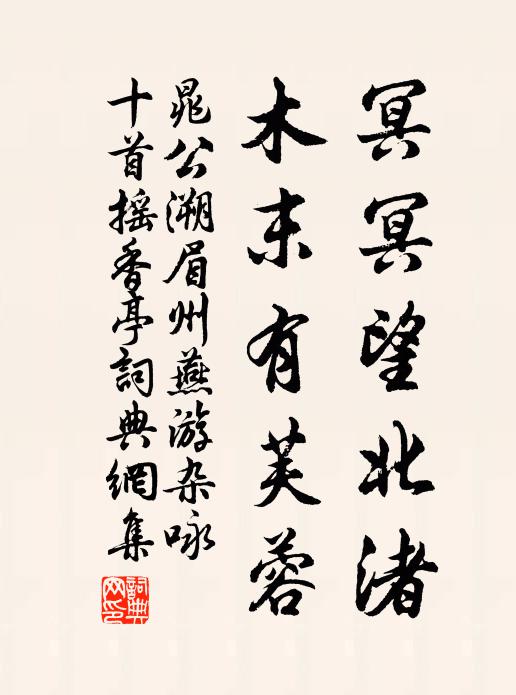 冥冥望北渚
木末有芙蓉
晁公溯眉州燕游杂咏
十首摇香亭詞典網集
詞典
网印